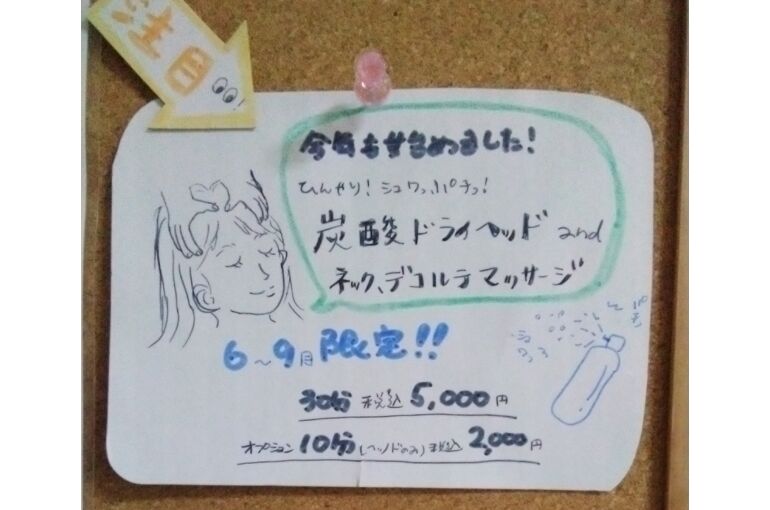 注目
今年も始めました!
ひんやり!シュワっパチっ!
炭酸ドライヘッド and
ネック、デコルテマッサージ
6〜9月限定!!
30分 税込 5,000円
オプション 10分(ヘッドのみ)税込 2,000円